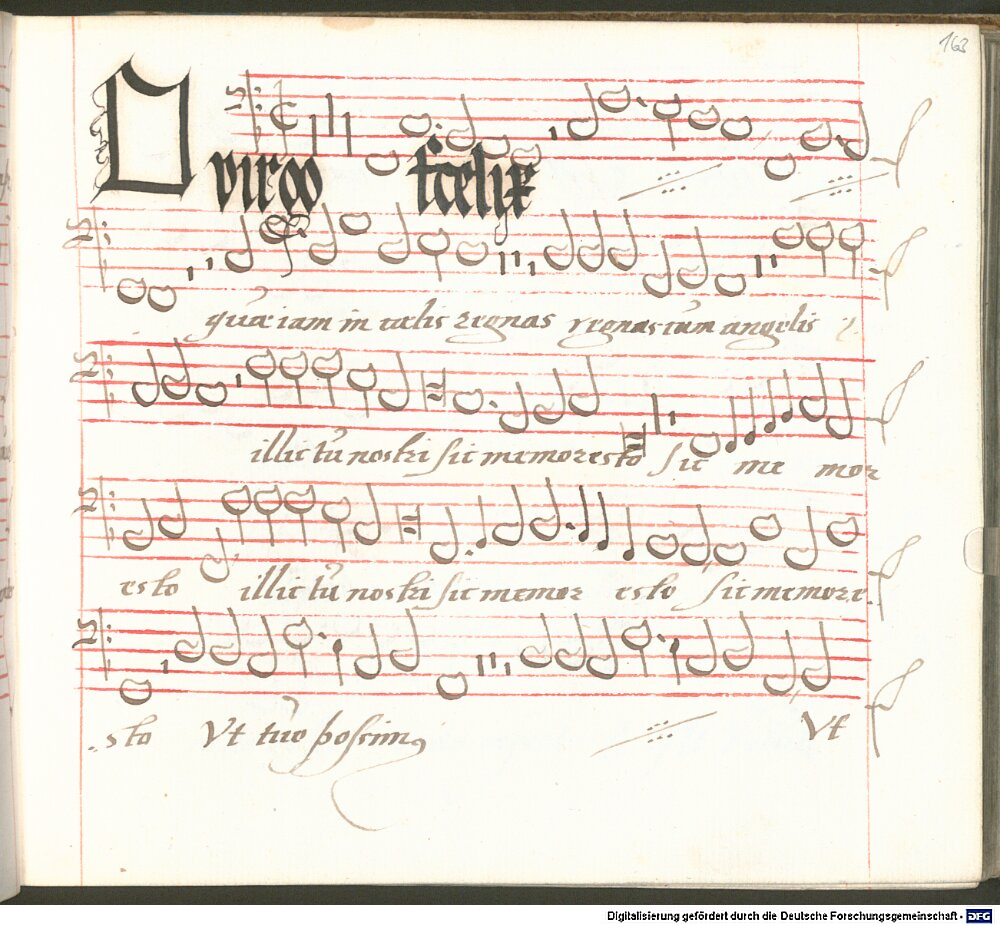 163
O virgo fœlix
quæ iam in cœlis regnas regnas cūm angelis
illic tū nostri sic memor esto sic me mor
esto illic tū nostri sic memor esto sic memor e
sto Vt tuo possimꝰ Vt
Digitalisierung gefördert durch die Deutsche Forschungsgemeinschaft - DFG